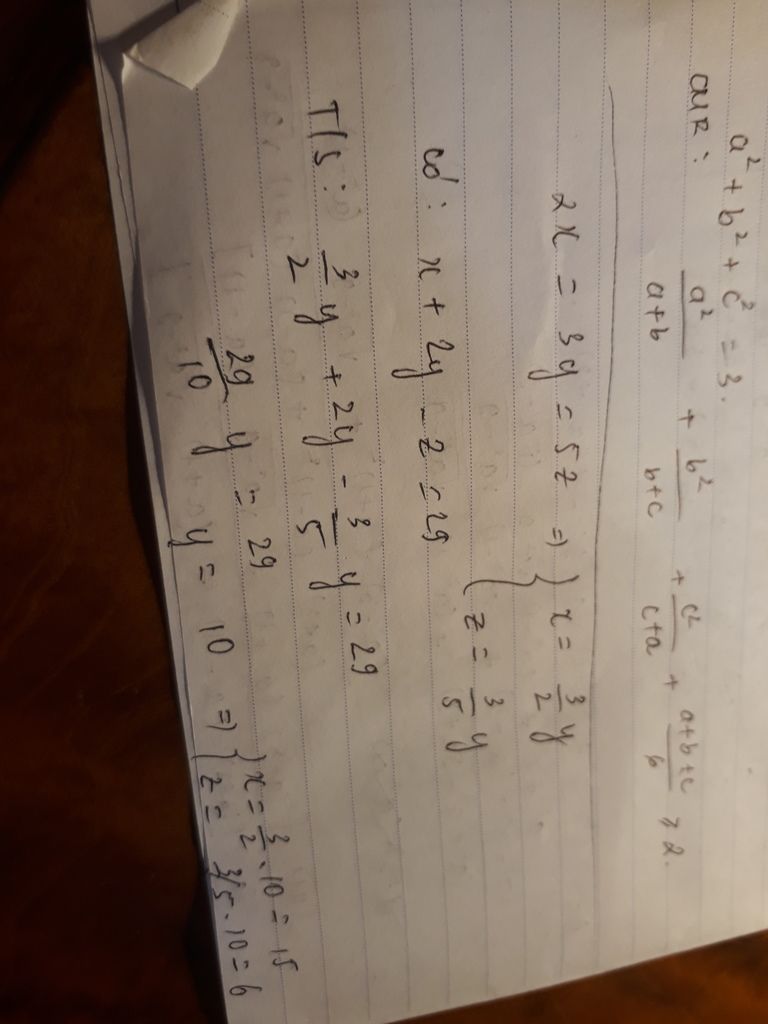 a² + b² + c² = 3.
CMR : a²/a+b + b²/b+c + c²/c+a + a+b+c/6 ≥ 2.
2x = 3y = 5z => { x = 3/2 y
z = 3/5 y
có : x + 2y - z = 29
T/S : 3/2 y + 2y - 3/5 y = 29
29/10 y = 29
y = 10 => { x = 3/2 . 10 = 15
z = 3/5 . 10 = 6